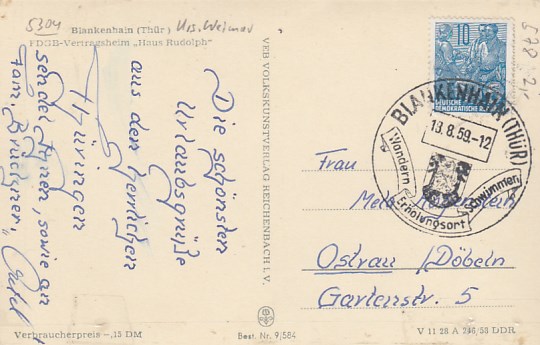 5304
Krs. Weimar
Blankenhain (Thür)
FDGB-Vertragsheim „Haus Rudolph"
Die schönsten
Urlaubsgrüße
aus dem herrlichen
Thüringen
sendet Ihnen, sowie an
Fam.
VEB VOLKSKUNSTVERLAG REICHENBACH I. V.
10
DEUTSCHE
DEMOKRATISCHE
BLANKENHAIN (THÜR)
18.8.59.-12
Wandern
Erholungsort
Schwimmen
Frau
Ostrau / Döbeln
Gartenstr. 5
Verbraucherpreis -,15 DM
Best. Nr. 9/584
V 11 28 A 246/58 DDR